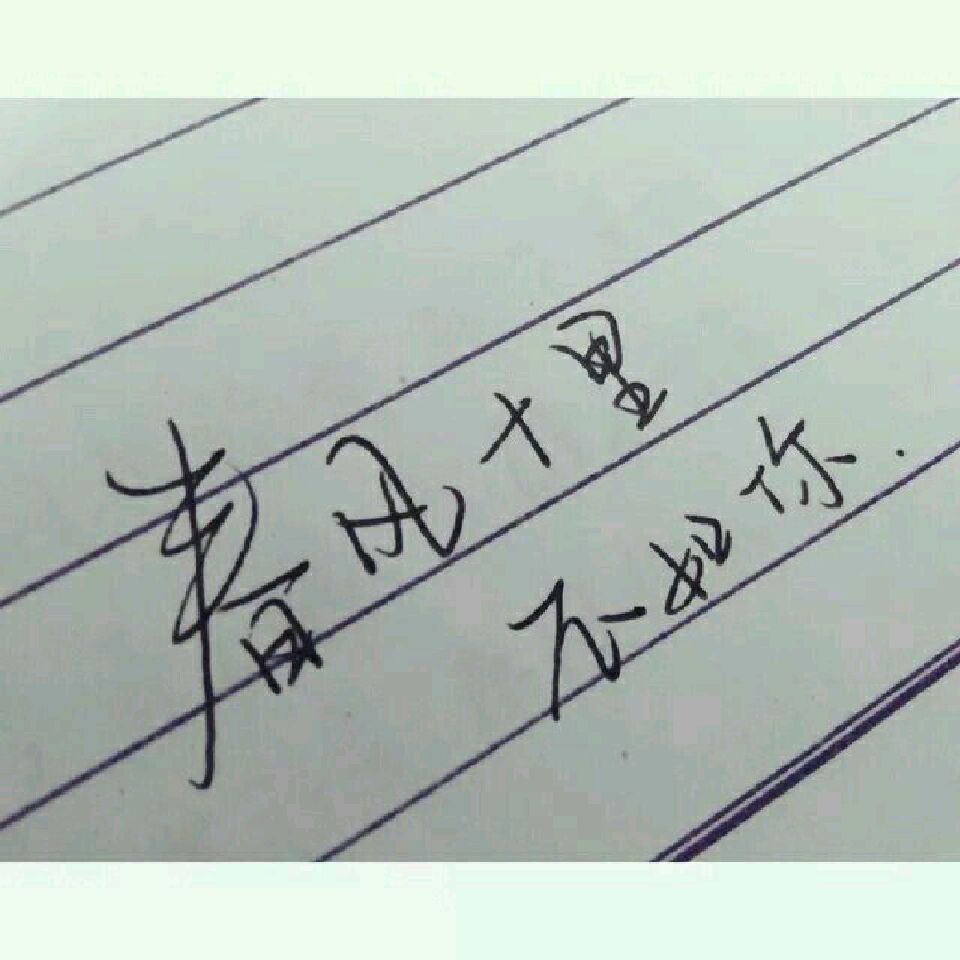 春风十里
不如你.